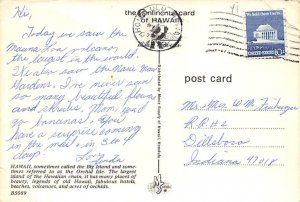 Hi
the continental card
of HAWAII
Today we saw the
Mauna Loa volcano,
the largest in the world.
We also saw the
Gardens. I've never seen
so many beautiful flowers
and shrubs. Mom, you'd
go bananas. You
have a surprise coming
in the mail, in 3 or 4
days.
Love,
Linda
HAWAII, sometimes called the Big Island and some-
times referred to as the Orchid Isle. The largest
island of the Hawaiian chain, it has many places of
beauty, legends of old Hawaii, fabulous hotels,
beaches, volcanoes, and acres of orchids.
B5069
post card
Mr. & Mrs. W. M.
R.R. #2
Dillsboro
Indiana 47018